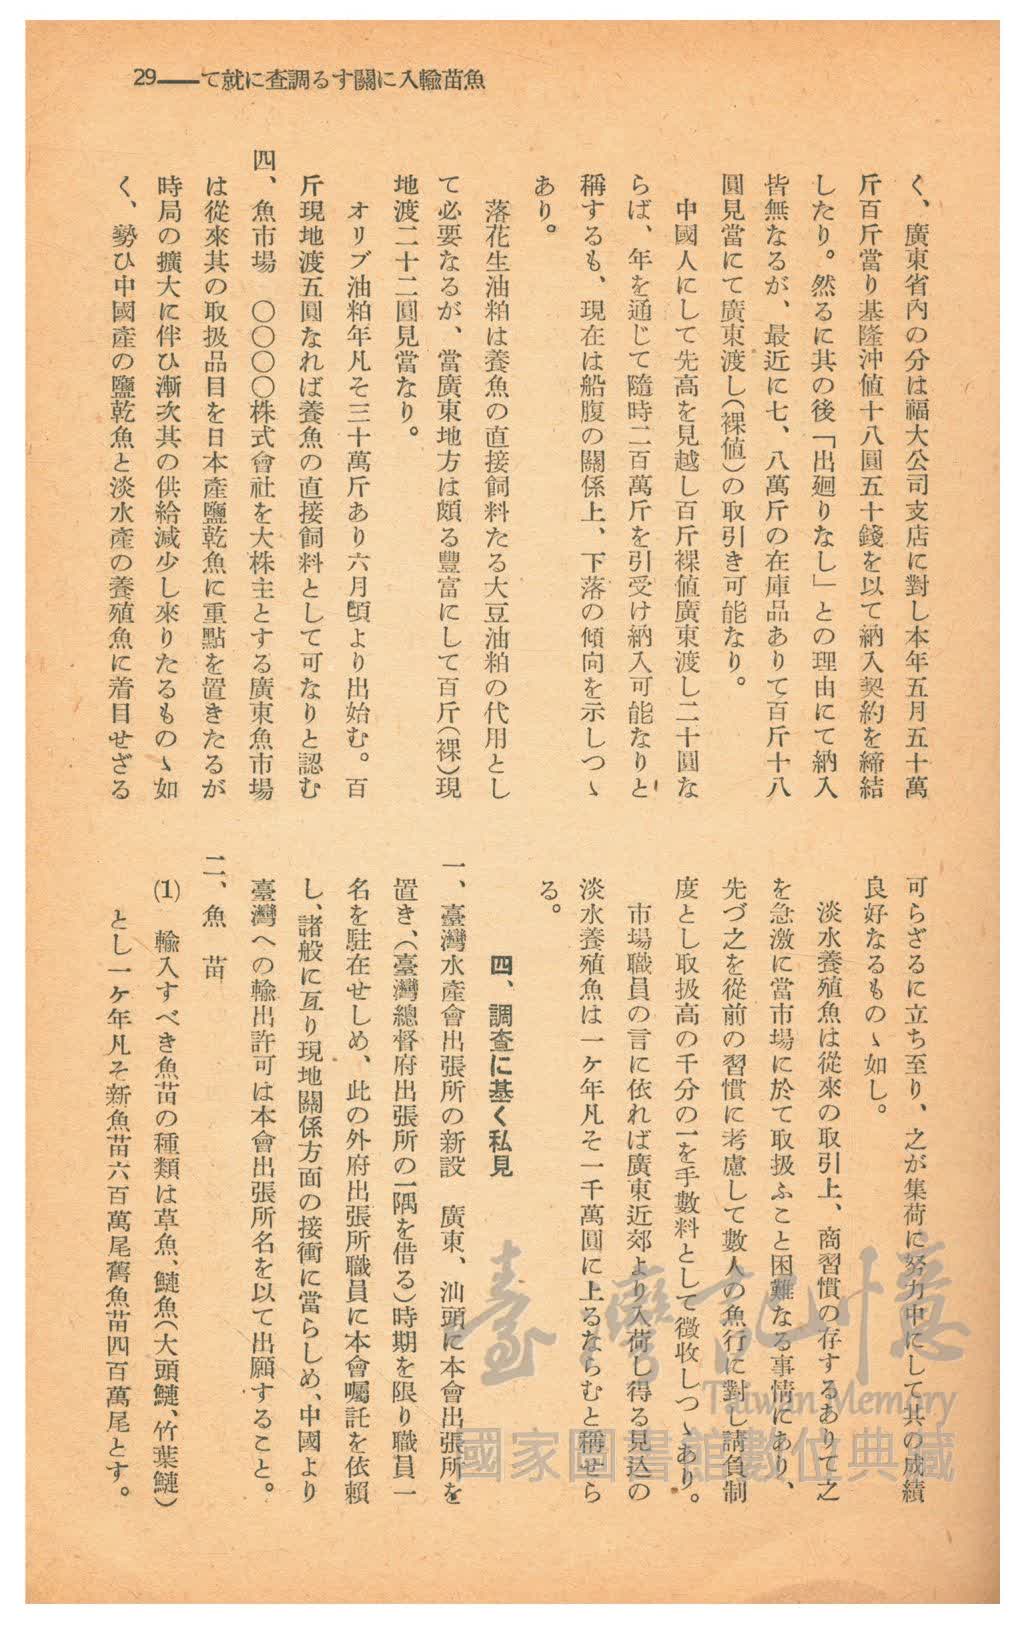 29——て就に査調るす關に入輸苗魚
く、廣東省內の分は福大公司支店に對し本年五月五十萬
斤百斤當り基隆沖値十八圓五十錢を以て納入契約を締結
したり。然るに其の後「出廻りなし」との理由にて納入
皆無なるが、最近に七、八萬斤の在庫品ありて百斤十八
圓見當にて廣東渡し(裸値)の取引き可能なり。
中國人にして先高を見越し百斤裸値廣東渡し二十圓な
らば、年を通じて隨時二百萬斤を引受け納入可能なりと
稱するも、現在は船腹の關係上、下落の傾向を示しつゝ
あり。
落花生油粕は養魚の直接飼料たる大豆油粕の代用とし
て必要なるが、當廣東地方は頗る豐富にして百斤(裸)現
地渡二十二圓見當なり。
オリブ油粕年凡そ三十萬斤あり六月頃より出始む。百
斤現地渡五圓なれば養魚の直接飼料として可なりと認む
四、魚市場 〇〇〇〇株式會社を大株主とする廣東魚市場
は從來其の取扱品目を日本產鹽乾魚に重點を置きたるが
時局の擴大に伴ひ漸次其の供給減少し來りたるものゝ如
く、勢ひ中國產の鹽乾魚と淡水產の養殖魚に着目せざる
可らざるに立ち至り、之が集荷に努力中にして其の成績
良好なるものゝ如し。
淡水養殖魚は從來の取引上、商習慣の存するありて之
を急激に當市場に於て取扱ふこと困難なる事情にあり、
先づ之を從前の習慣に考慮して數人の魚行に對し請負制
度とし取扱高の千分の一を手數料として徵收しつゝあり。
市場職員の言に依れば廣東近郊より入荷し得る見込の
淡水養殖魚は一ケ年凡そ一千萬圓に上るならむと稱せら
る。
四、調查に基く私見
一、臺灣水產會出張所の新設 廣東、汕頭に本會出張所を
置き、(臺灣總督府出張所の一隅を借る)時期を限り職員一
名を駐在せしめ、此の外府出張所職員に本會囑託を依賴
し、諸般に亙り現地關係方面の接衝に當らしめ、中國より
臺灣への輸出許可は本會出張所名を以て出願すること。
二、魚 苗
(1) 輸入すべき魚苗の種類は草魚、鰱魚(大頭鰱、竹葉鰱)
とし一ケ年凡そ新魚苗六百萬尾舊魚苗四百萬尾とす。
臺灣記憶
Taiwan Memory
國家圖書館數位典藏